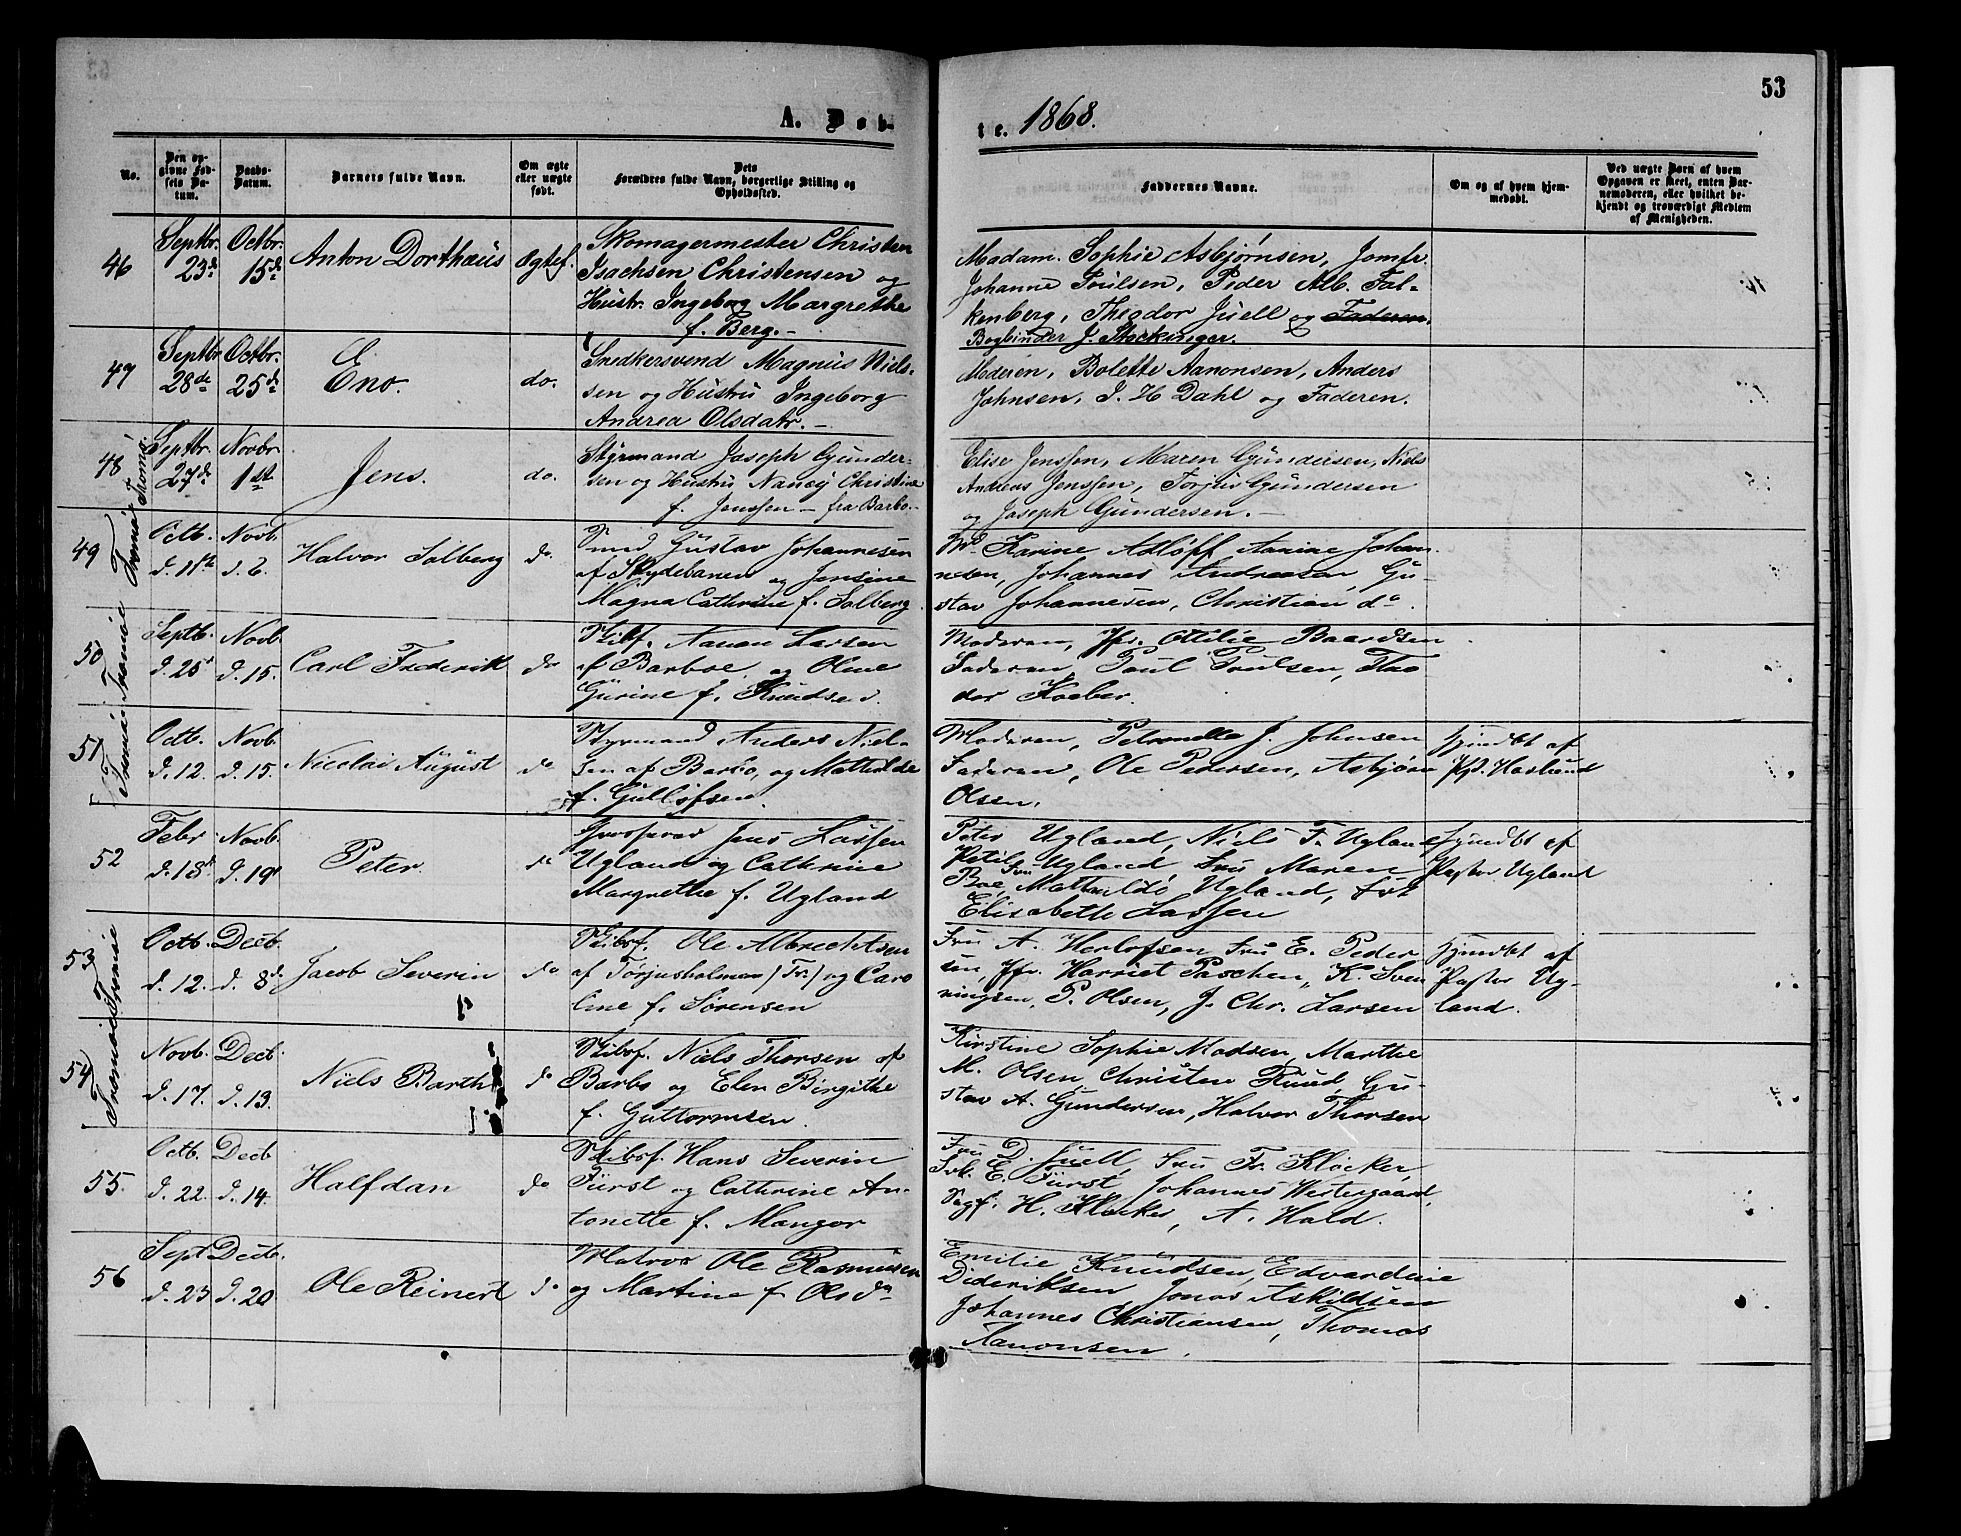 53
A. Døb-
te. 1868.
No.
Den op-
givne Fød-
sels Da-
tum.
Daabs-
Datum.
Barnets fulde Navn.
Om ægte
eller uægte
født.
Dets
Forældres fulde Navn, borgerlige Stilling og
Opholdssted.
Faddernes Navne.
Om og af hvem hjem-
medøbt.
Ved uægte Børn af hvem
Opgaven er skeet, enten Bar-
nemoderen, eller hvilket be-
kjendt og troværdigt Medlem
af Menigheden.
46
Septbr.
23d
Octbr.
15d
Anton Dorthæus
Ægtef.
Skomagermester Christen
Isachsen Christensen og
Hustr. Ingeborg Margrethe
f. Berg.-
Madam. Sophie Asbjørnsen, Jomfr.
Johanne Poulsen, Peder Alb. Fal-
kenberg, Theodor Juell og Faderen,
Bogbinder J. Stockinger.
47
Septbr
28de
Octbr.
25d
Eno.
do.
Snedkersvend Magnus Niel-
sen og Hustru Ingeborg
Andrea Olsdatr.-
Moderen, Bolette Aanonsen, Anders
Johnsen, J. H Dahl og Faderen.
48
Tromø.
Septbr.
27d
Novbr
1st
Jens.
do.
Styrmand Joseph Gunder-
sen og Hustru Nancy Christine
f. Jenssen - fra Barbo.-
Elise Jenssen, Maren Gundersen, Niels
Andreas Jenssen, Torjus Gundersen
og Joseph Gundersen.-
49
Tromøe
Octb.
d. 11te
Novb.
d. 2.
Halvor Solberg
do
Smed Gustav Johannesen
af Skydebanen og Jensine
Magna Cathrine f. Solberg
Md Karine Adløff Aanine Johan-
nesen, Johannes Andreasen Gu-
stav Johannesen, Christian do.
50
Tromøe
Septb.
d. 25
Novb.
d. 15.
Carl Frederik
do
Skibsf. Aanon Larsen
af Barboe, og Oline
Gurine f. Knudsen.
Moderen, Jfr. Ottilie Baardsen
Faderen, Poul Poulsen, Theo
dor Koeber.
51
Tromøe
Octb.
d. 12.
Novb.
d. 15.
Nicolai August
do
Styrmand Anders Niel-
sen af Barbo, og Mathilde
f. Gulløfsen.
Moderen, Petronelle J. Johnsen
Faderen, Ole Pedersen, Asbjørn
Olsen.
Hjmdbt af
52
Febr
d. 18d
Novb.
d. 19
Peter.
do
Jens Lassen
Ugland og Cathrine
Margrethe f. Ugland
Peter Ugland, Niels F. Ugland
Ugland, Fru Maren
Boe, Fru Mathilde Ugland, Frk
Elisabeth Lassen
Hjmdbt af
Pastor Ugland
53
Tromøe
Octb.
d. 12.
Decb.
d. 8d
Jacob Severin
do
Skibsf. Ole Albrechtsen
af Torjusholmen (Tr.) og Caro
line f. Sørensen
Fru A. Herlofsen, Fru E. Peder
sen, Jfr. Harriet Paschen, K. Sven
ningsen, P. Olsen, J. Chr. Larsen
Hjmdbt af
Pastor Ug-
land.
54
Tromøe
Novb.
d. 17.
Decb.
d. 13.
Niels Barth
do
Skibsf. Niels Thorsen af
Barbo og Elen Birgithe
f. Guttormsen.
Kirstine Sophie Madsen, Marthe
M. Olsen, Christen Knud, Gu-
stav A. Gundersen, Halvor Thorsen
55.
Octb.
d. 22.
Decb
d. 14.
Halfdan
do
Skibsf. Hans Severin
Fürst og Cathrine An-
tonette f. Mangor
Fru D. Juell, Fru Fr. Kløcker,
Frk. E. Fürst, Johannes Westergaard,
Sagf. H. Kløcker, A. Hald.
56
Sept
d. 23
Decb.
d. 20
Ole Reinert
do
Matros Ole Rasmussen
og Martine f. Olsdr
Emilie Knudsen, Edvardine
Dideriksen Jonas Askildsen
Johannes Christiansen, Thomas
Aanonsen.